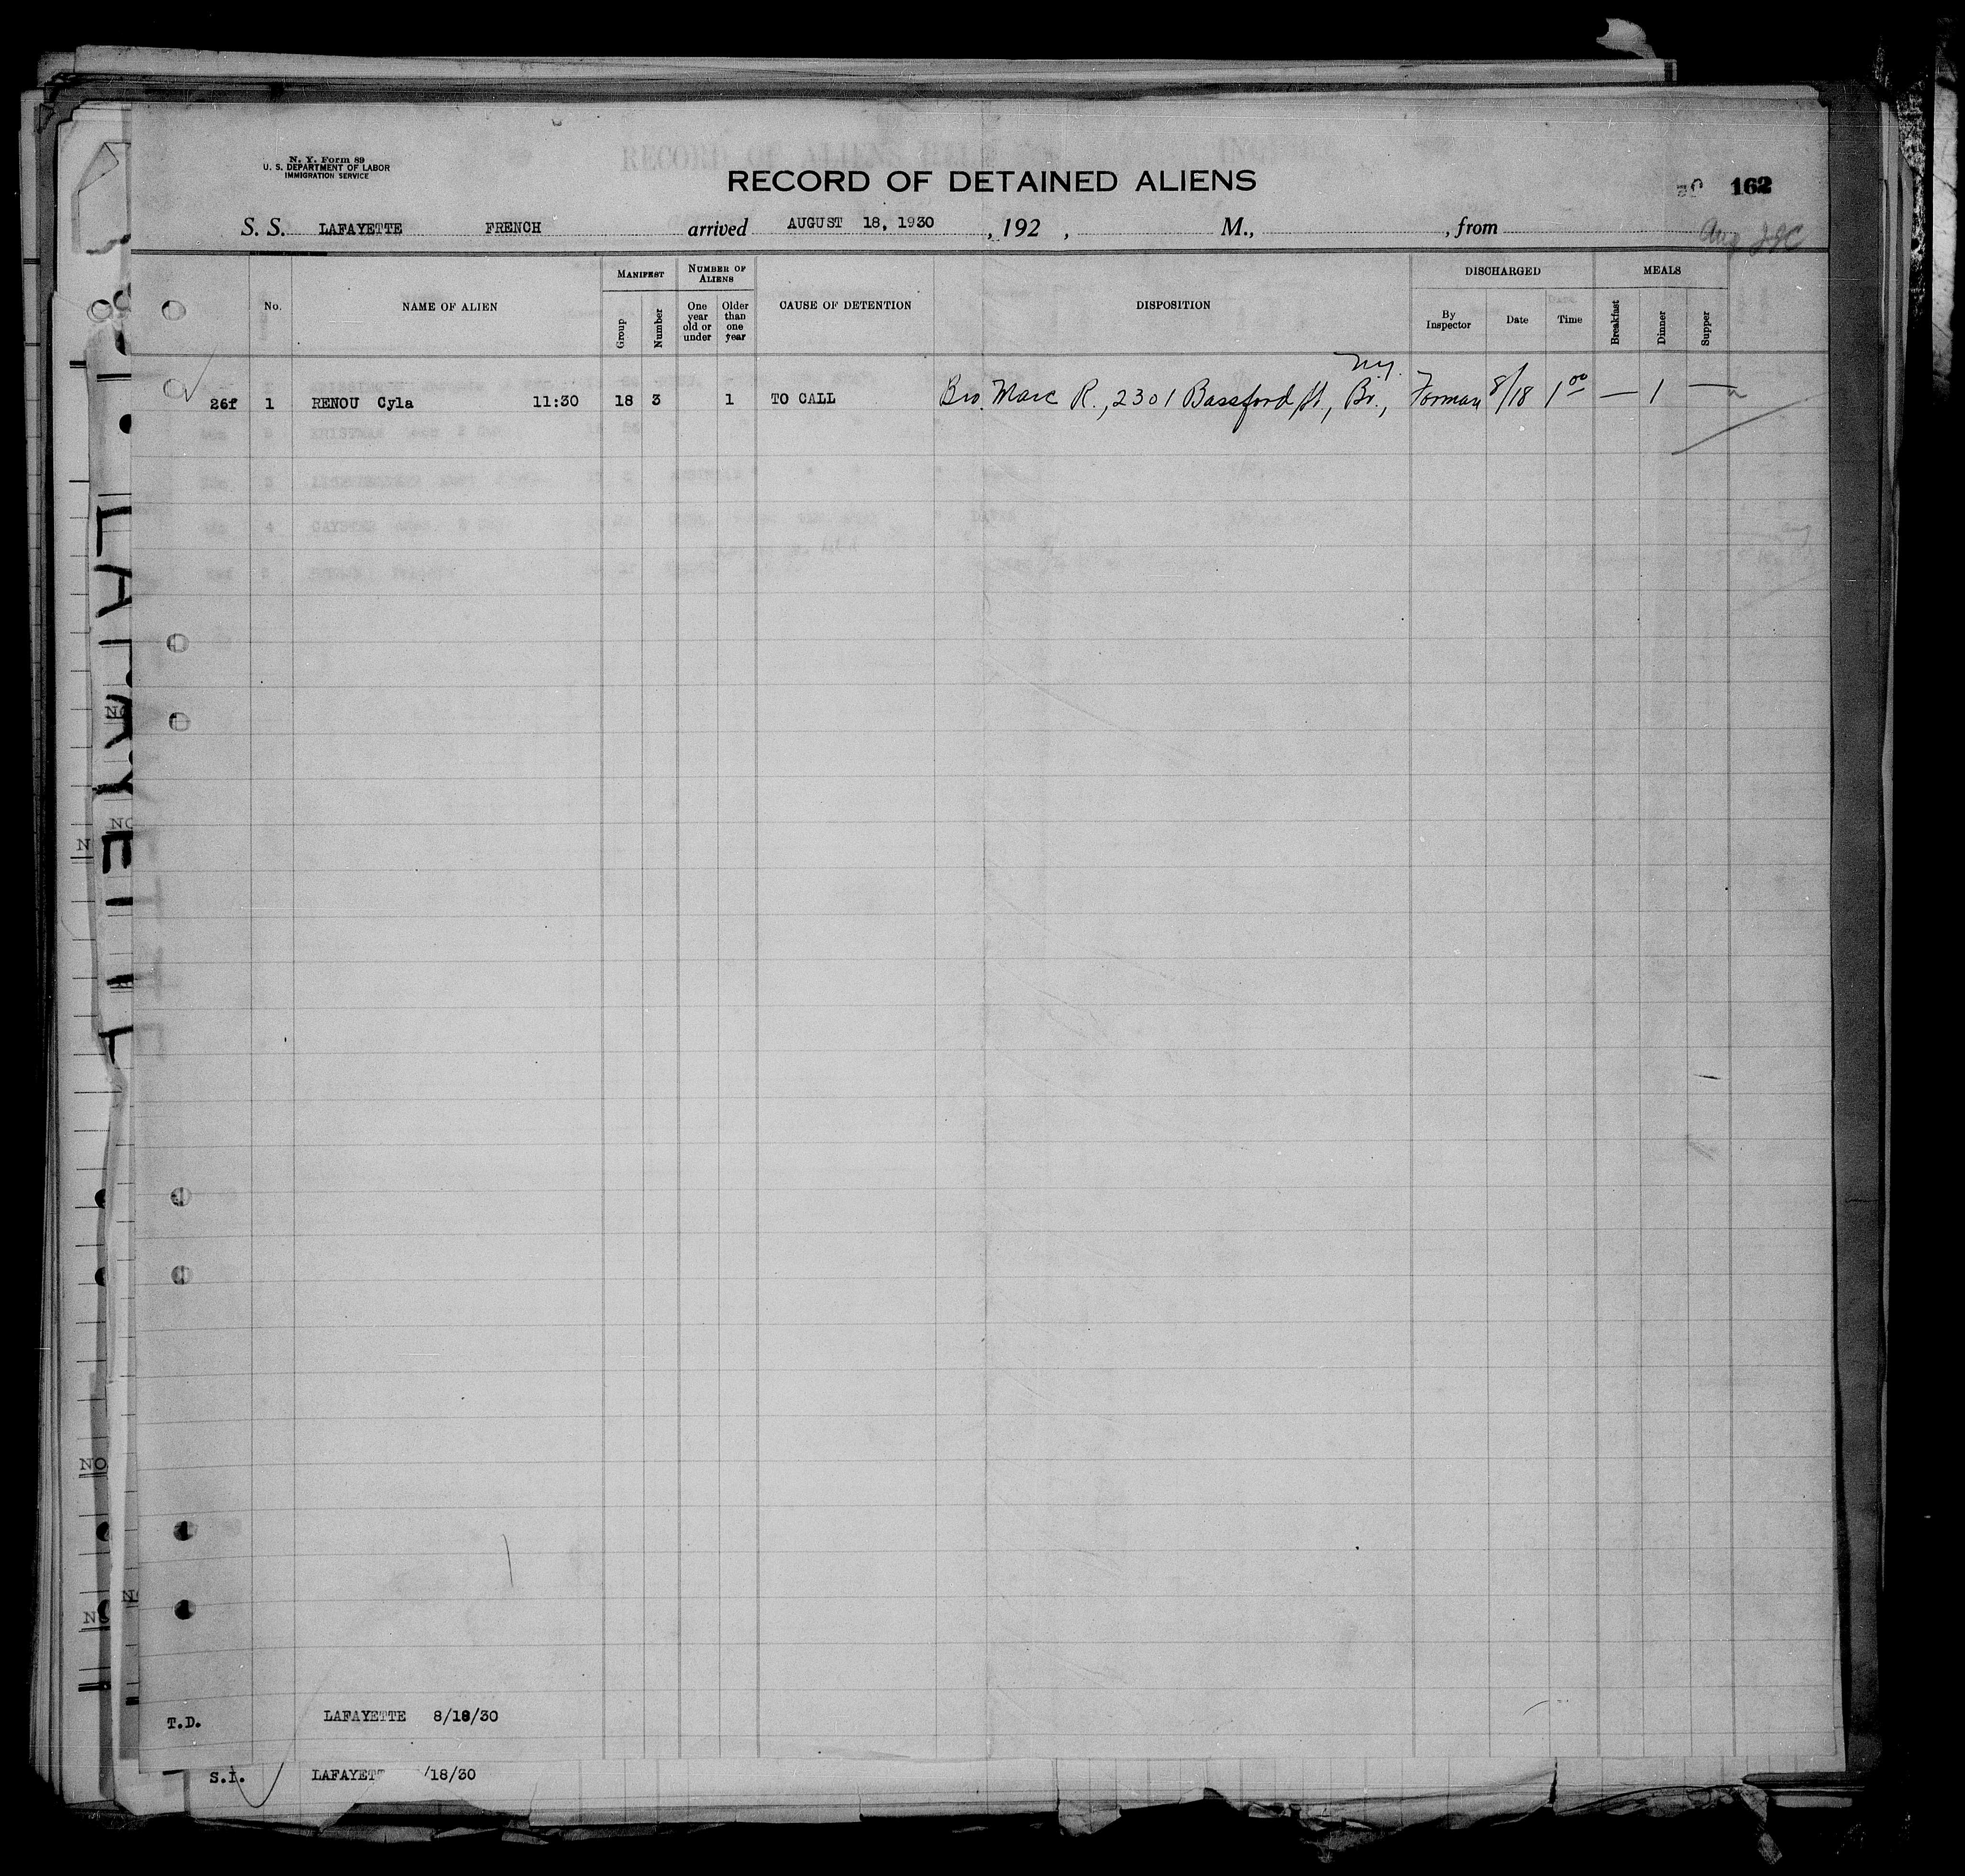 N. Y. Form 89
U. S. DEPARTMENT OF LABOR
IMMIGRATION SERVICE
RECORD OF DETAINED ALIENS
162
S. S. LAFAYETTE FRENCH arrived AUGUST 18, 1930, 192 , M., , from
No. NAME OF ALIEN MANIFEST Group Number NUMBER OF ALIENS One year old or under Older than one year CAUSE OF DETENTION DISPOSITION DISCHARGED By Inspector Date Time MEALS Breakfast Dinner Supper
N.Y.
26f 1 RENOU Cyla 11:30 18 3 1 TO CALL Bro. Marc R., 2301 Bassford St, Bx., Forman 8/18 1 00 — 1 —
T.D. LAFAYETTE 8/18/30
S.I. LAFAYET /18/30